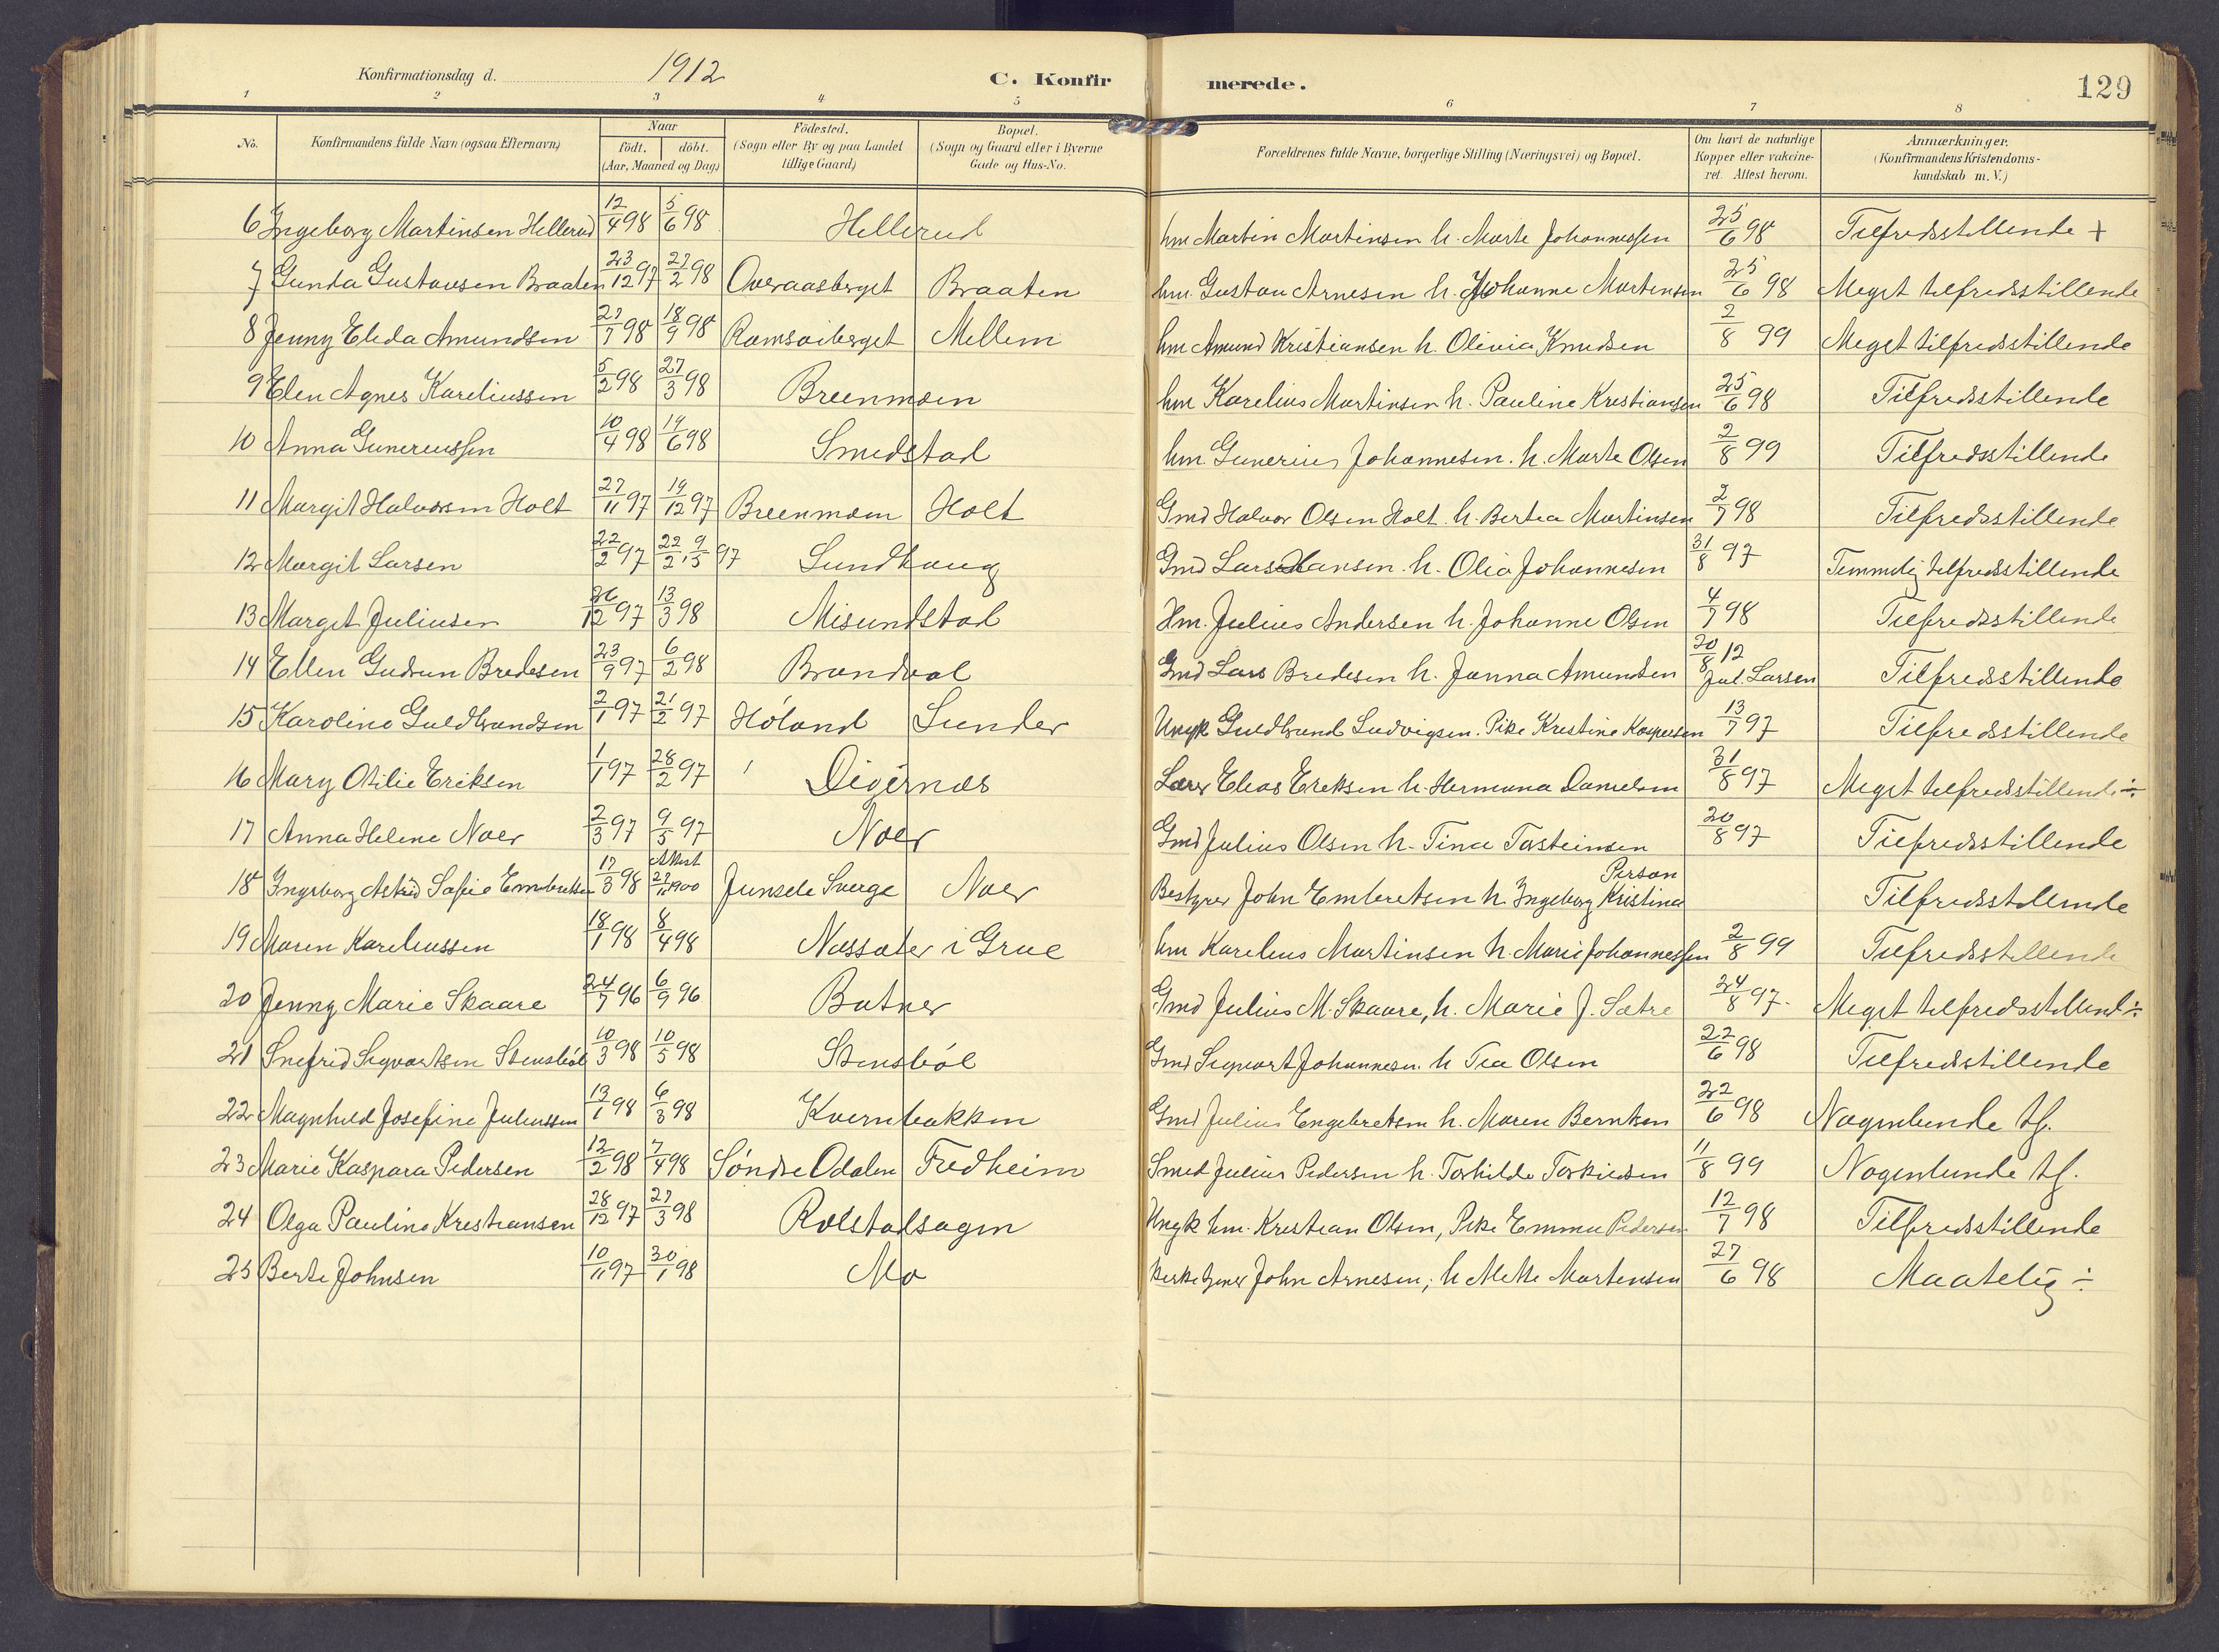 Konfirmationsdag d. 1912 C. Konfir merede. 129
1 2 3 4 5 6 7 8
No. Konfirmandens fulde Navn (ogsaa Efternavn) Naar født. døbt. (Aar, Maaned og Dag) Fødested. (Sogn eller By og paa Landet tillige Gaard) Bopæl. (Sogn og Gaard eller i Byerne Gade og Hus-No. Forældrenes fulde Navne, borgerlige Stilling (Næringsvei) og Bopæl. Om havt de naturlige Kopper eller vakcineret. Attest herom. Anmærkninger. (Konfirmandens Kristendomskundskab m. V.)
6 Ingeborg Martinsen Hellerud 12/4 98 5/6 98 Hellerud hm Martin Martinsen h. Marte Johannessen 25/6 98 Tilfredsstillende +
7 Gunda Gustavsen Braaten 23/12 97 27/2 98 Overaasberget Braaten hm. Gustav Arnesen h. Johanne Martensen 25/6 98 Meget tilfredsstillende
8 Jenny Elida Amundsen 27/7 98 18/9 98 Ramsoiberget Mellem hm Amund Kristiansen h. Olivia Knudsen 2/8 99 Meget tilfredsstillende
9 Elen Agnes Kareliussen 5/2 98 27/3 98 Breenmoen hm Karelius Martinsen h. Pauline Kristiansen 25/6 98 Tilfredsstillende
10 Anna Gunereussen 10/4 98 19/6 98 Smedstad hm Gunerius Johannesen. h. Marte Olsen 2/8 99 Tilfredsstillende
11 Margit Halvorsen Holt 27/11 97 19/12 97 Breenmoen Holt Gmd Halvor Olsen Holt. h. Bertea Martinsen 2/7 98 Tilfredsstillende
12 Margit Larsen 22/2 97 22/2 9/5 97 Sundhaug Gmd Lars Hansen. h. Olia Johannesen 31/8 97 Temmelig tilfredsstillende
13 Marget Juliusen 26/12 97 13/3 98 Misundstad Hm. Julius Andersen h. Johanne Olsen 4/7 98 Tilfredsstillende
14 Ellen Gudrun Bredesen 23/9 97 6/2 98 Brandval Gmd Lars Bredesen h. Janna Amundsen 20/8 12 Jul. Larsen Tilfredsstillende
15 Karoline Guldbrandsen 2/1 97 21/2 97 Høland Sunder Ungk Guldbrand Ludvigsen. Pike Kristine Kaspersen 13/7 97 Tilfredsstillende
16 Mary Otilie Eriksen 1/1 97 28/2 97 Digernes Lærer Elias Eriksen h. Hermana Danielsen 31/8 97 Meget tilfredsstillende ÷
17 Anna Helene Noer 2/3 97 9/5 97 Noer Gmd Julius Olsen h. Tina Tosteinsen 20/8 97 Tilfredsstillende
18 Ingeborg Astrid Sofie Embretsen 17/3 98 Attest 27/11 1900 Junsele Sverge Noer Bestyrer John Embretsen h. Ingeborg Kristina Person Tilfredsstillende
19 Maren Kareliussen 18/1 98 8/4 98 Næssæter i Grue hm Karelius Martinsen h. Marie Johannessen 2/8 99 Tilfredsstillende
20 Jenny Marie Skaare 24/7 96 6/9 96 Batner Gmd Julius M. Skaare, h. Marie J. Sætre 24/8 97. Meget tilfredsstillend ÷
21 Snefrid Sigvartsen Stensbøl 10/3 98 10/5 98 Stensbøl Gmd Sigvart Johannesen. h Tea Olsen 22/6 98 Tilfredsstillende
22 Magnhild Josefine Juliussen 13/1 98 6/3 98 Kvernbakken Gmd Julius Engebretsen h. Maren Berntsen 22/6 98 Nogenlunde tf.
23 Marie Kaspara Pedersen 12/2 98 7/4 98 Søndre Odalen Fredheim Smed Julius Pedersen h. Torhilde Torkildsen 11/8 99 Nogenlunde tf.
24 Olga Pauline Kristiansen 28/12 97 27/3 98 Rolstadsagen Ungk hm. Kristian Olsen, Pike Emma Pedersen 12/7 98 Tilfredsstillende
25 Berte Johnsen 10/11 97 30/1 98 Mo Kirketjener John Arnesen; h Mette Mortensen 27/6 98 Maatelig ÷